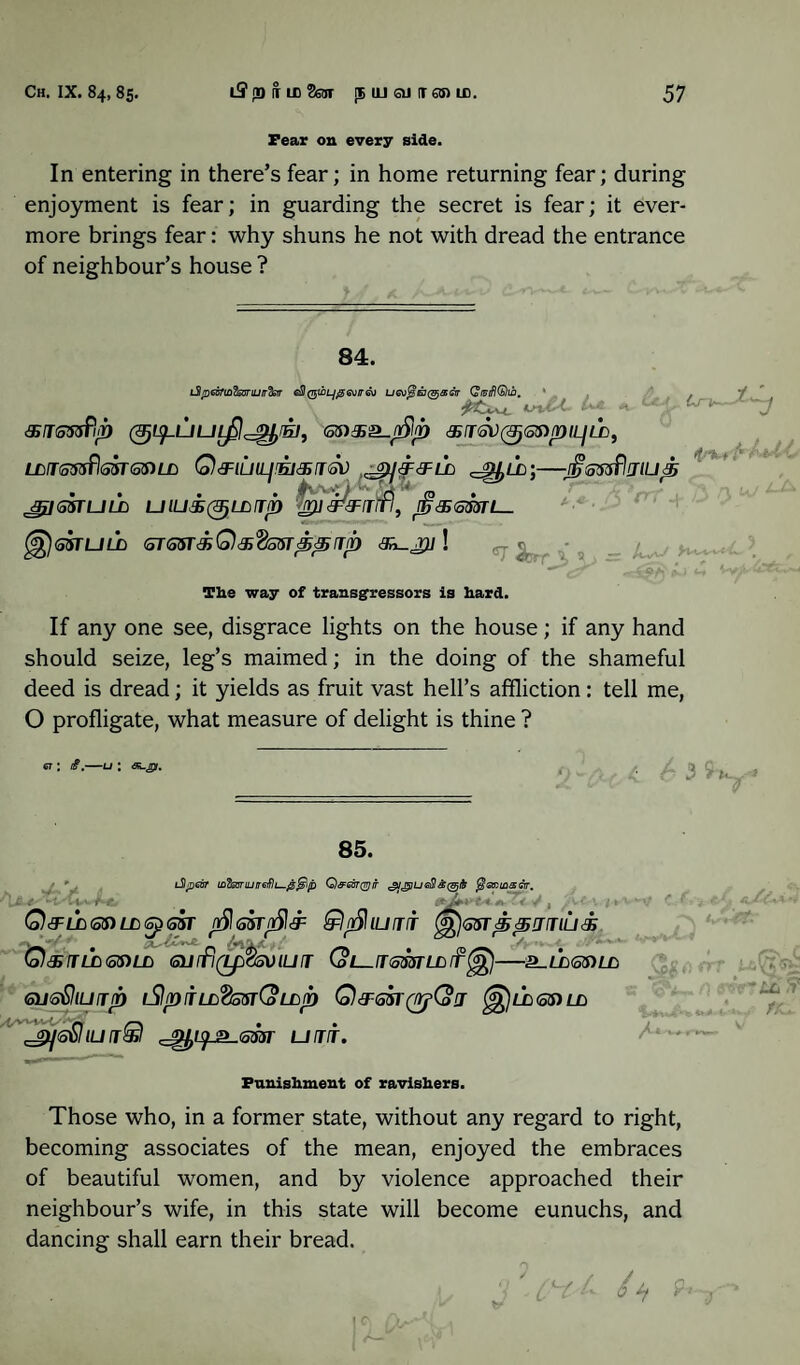 CH. IX. 84, 85. பிறர்மனை நயவாமை. 57
Fear on every side.
In entering in there's fear; in home returning fear; during
enjoyment is fear; in guarding the secret is fear; it ever-
more brings fear: why shuns he not with dread the entrance
of neighbour's house?
84.
பிறன்மனையாளை விரும்புதலால் பலதீங்குகள் நேரிடும்.
காணிற் குடிப்பழிஆங், கையுறிற் கால்குறையும்,
மாணின்மை செய்யுங்கால் அச்சம் ஆம்;—நீணிரயத்
துன்பம் பயக்குமாற் றுச்சாரி, நீகண்ட
இன்பம் எனக்கெனைத்தாற் கூறு!
The way of transgressors is hard.
If any one see, disgrace lights on the house; if any hand
should seize, leg's maimed; in the doing of the shameful
deed is dread; it yields as fruit vast hell's affliction: tell me,
O profligate, what measure of delight is thine?
எ: நீ.—ப: கூறு.
85.
பிறன் மனையாளிடத்திற் சென்றார் அனுபவிக்கு தீமைகள்.
செம்மையொன் றின்றிச் சிறியார் இனத்தராய்க்
கொம்மை வரிமுலையா டோண்மரீஇ—உம்மை
வலியாற் பிறர்மனைமேற் சென்றாரே இம்மை
அலியாகி ஆடிஉண் பார்.
Punishment of ravishers.
Those who, in a former state, without any regard to right,
becoming associates of the mean, enjoyed the embraces
of beautiful women, and by violence approached their
neighbour's wife, in this state will become eunuchs, and
dancing shall earn their bread.